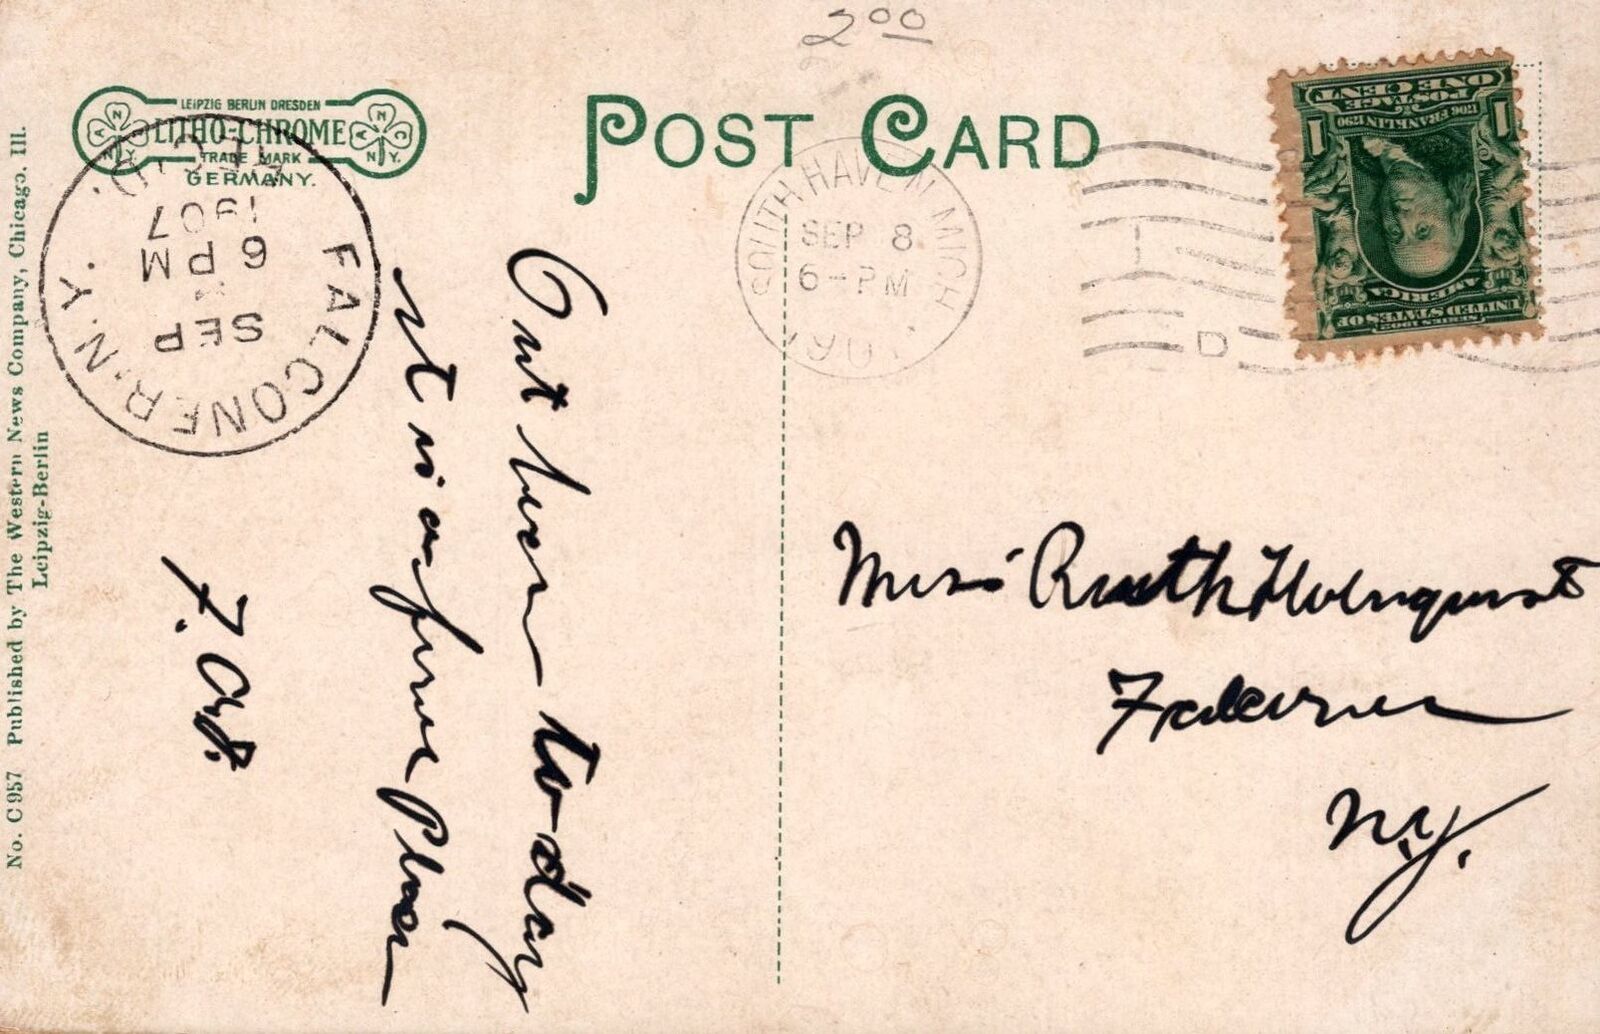 2 00
LEIPZIG BERLIN DRESDEN
LITHO-CHROME
TRADE MARK
GERMANY.
POST CARD
No. C 957 Published by The Western News Company, Chicago, Ill.
Leipzig-Berlin
FALCONER, N.Y.
SEP
6 PM
1907
REC'D.
SOUTH HAVEN MICH
SEP 8
6-PM
190
D
SERIES 1902
UNITED STATES OF
AMERICA
1706 FRANKLIN 1790
POSTAGE
ONE CENT
1 1
Out here to-day
it is a fine place
F.
Miss Ruth Holmquist
Falconer
N.Y.